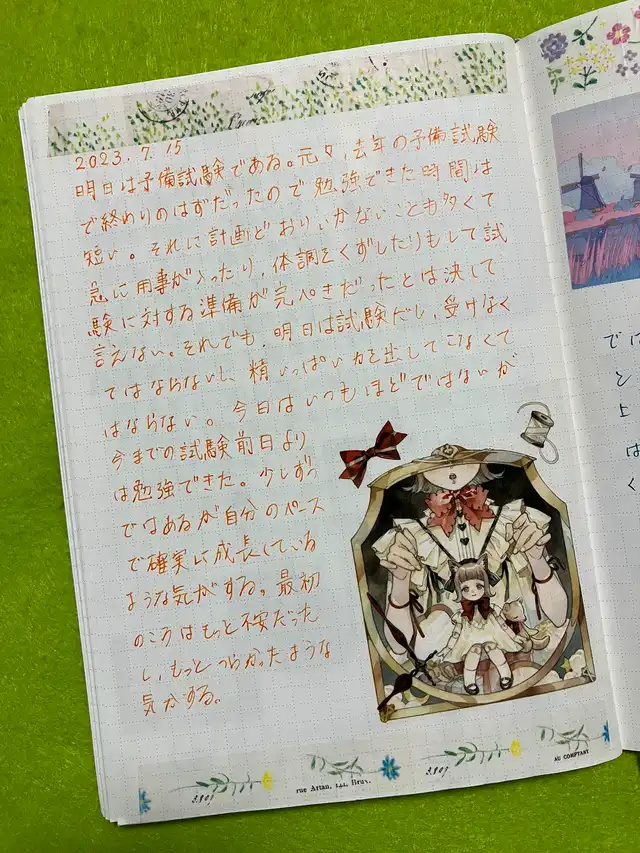 2023.7.15
明日は予備試験である。元々、去年の予備試験
で終わりのはずだったので勉強できた時間は
短い。それに計画どおりいかないことも多くて
急に用事が入ったり、体調をくずしたりもして試
験に対する準備が完ぺきだったとは決して
言えない。それでも、明日は試験だし、受けなく
てはならないし、精いっぱい力を出してこなくて
はならない。今日はいつもほどではないが
今までの試験前日より
は勉強できた。少しずつ
ではあるが自分のペース
で確実に成長している
ような気がする。最初
のころはもっと不安だった
し、もっとつらかったような
気がする。
では
と
上
は
く
3.807
rue Artan,
3.807
AU COMPTANT